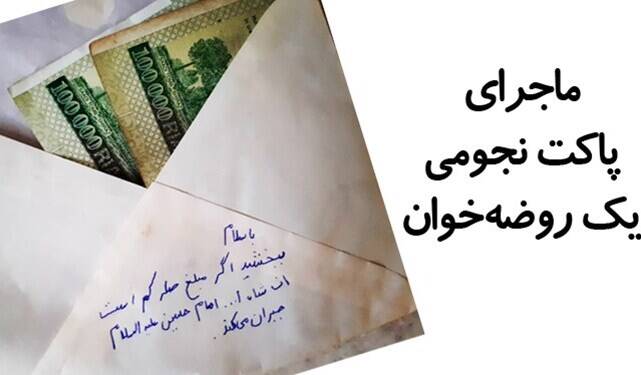 ماجرای
پاکت نجومی
یک روضه‌خوان
100000RIALS
100000RI
با سلام
ببخشید اگر مبلغ صله کم است
ان شاء ا... امام حسین علیه السلام
جبران می‌کند.